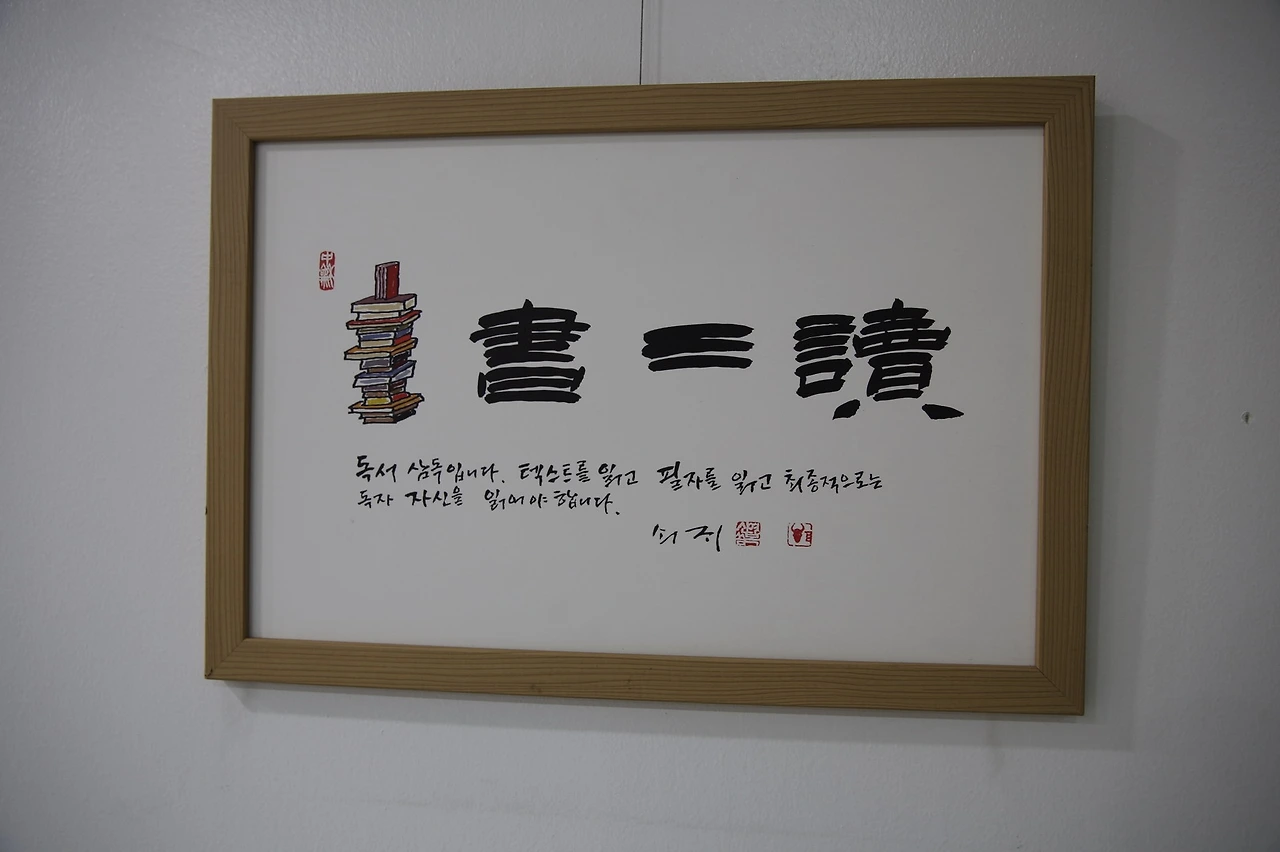 書三讀
독서 삼독입니다. 텍스트를 읽고 필자를 읽고 최종적으로는
독자 자신을 읽어야 합니다.
쇠귀